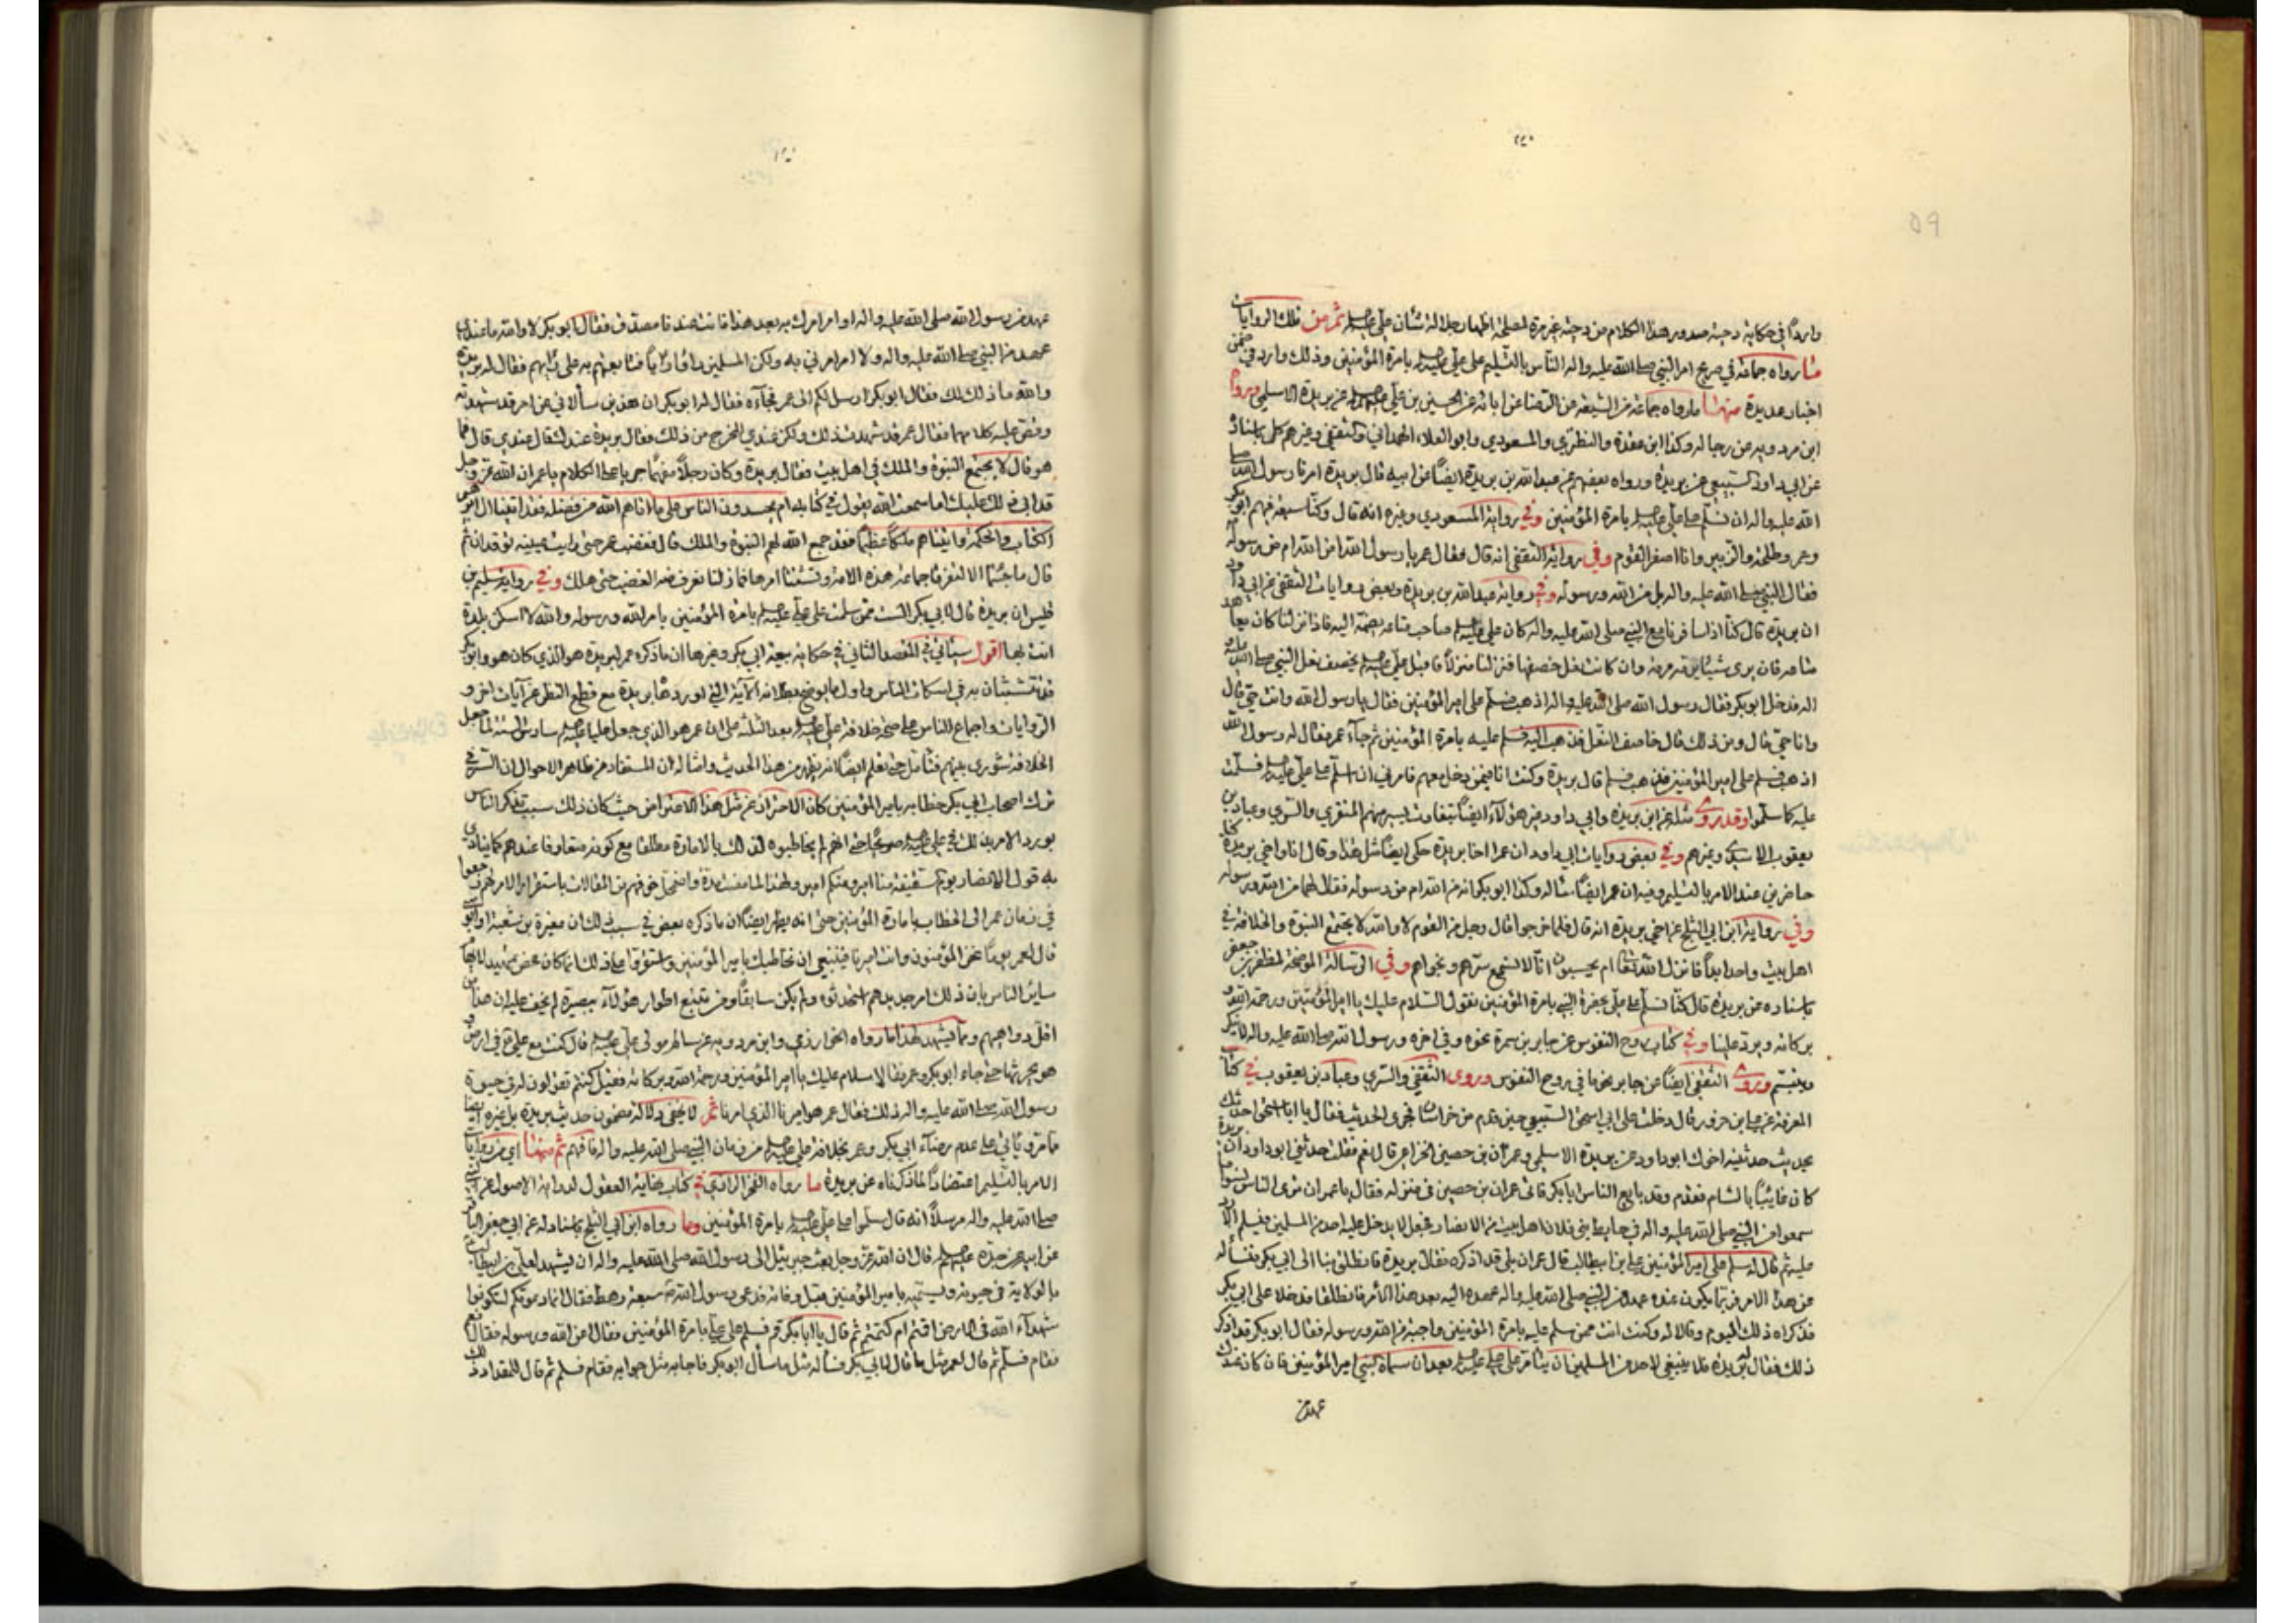 ٥٩
واردًا في حكاية دحية صدور هذا الكلام من دحية غير مرة لمصلحة اظهار جلالة شأن علي عليه السلم ثم من تلك الروايات
ما رواه جماعة في صريح امر النبي صلى الله عليه واله الناس بالتسليم على علي عليه السلم بامرة المؤمنين وذلك وارد في ضمن
اخبار عديدة منها ما رواه جماعة من الشيعة عن الرضا عن ابائه عن الحسين بن علي عليهم السلم عن بريدة الاسلمي ورواه
ابن مردويه عن رجاله وكذا ابن عقدة والنطنزي والمسعودي وابو العلاء الهمداني والثقفي وغيرهم كل باسناده
عن ابي داود السبيعي عن بريدة ورواه بعضهم عن عبدالله بن بريدة ايضًا عن ابيه قال بريدة امرنا رسول الله صلى
الله عليه واله ان نسلم على علي عليه السلم بامرة المؤمنين وفي رواية المسعودي وغيره انه قال وكنا سبعة فيهم ابو بكر
وعمر وطلحة والزبير وانا اصغر القوم وفي رواية الثقفي انه قال فقال عمر يا رسول الله امن الله ام من رسوله
فقال النبي صلى الله عليه واله بل من الله ورسوله وفي رواية عبدالله بن بريدة وبعض روايات الثقفي عن ابي داود
ان بريدة قال كنا اذا سافرنا مع النبي صلى الله عليه واله كان علي عليه السلم صاحب متاعه يضمه اليه فاذا نزلنا كان يعاهد
متاعه فان يرى شيئا يرمه رمه وان كانت نعل خصفها فنزلنا منزلًا فاقبل علي عليه السلم يخصف نعل النبي صلى الله عليه و
اله فدخل ابو بكر فقال رسول الله صلى الله عليه واله اذهب فسلم على امير المؤمنين فقال يا رسول الله وانت حي قال
وانا حي قال ومن ذلك قال خاصف النعل فذهب اليه فسلم عليه بامرة المؤمنين ثم جاء عمر فقال له رسول الله
اذهب فسلم على امير المؤمنين فذهب فسلم قال بريدة وكنت انا فيمن دخل معهم فامرني ان اسلم على علي عليه السلم فسلمت
عليه كما سلموا وقد روى مثله عن ابن بريدة وابي داود غير هؤلاء ايضًا بتفاوت يسير منهم المنقري والسري وعباد بن
يعقوب الاسدي وغيرهم وفي بعض روايات ابي داود ان عمرا اخا بريدة حكى ايضا مثل هذا وقال انا واخي بريدة كنا
حاضرين عند الامر بالتسليم وفيه ان عمر ايضًا سأله وكذا ابو بكر انه من الله ام من رسوله فقال لهما من الله ورسوله
وفي رواية ابن ابي الثلج عن اخي بريدة انه قال فلما خرجوا قال رجل من القوم لا والله لا يجتمع النبوة والخلافة في
اهل بيت واحد ابدًا فانزل الله تعالى ام يحسبون انا لا نسمع سرهم ونجواهم وفي الرسالة الموضحة لمظفر بن جعفر
باسناده عن بريدة قال كنا نسلم على علي بحضرة النبي بامرة المؤمنين نقول السلام عليك يا امير المؤمنين ورحمة الله و
بركاته ويرد علينا وفي كتاب روح النفوس عن جابر بن سمرة نحوه وفي اخره ورسول الله صلى الله عليه واله لا ينكر
ويبتسم وروى الثقفي ايضًا عن جابر نحو ما في روح النفوس وروى الثقفي والسري وعباد بن يعقوب في كتاب
المعرفة عن علي بن حزور قال دخلت على ابي اسحق السبيعي حين قدم من خراسان فجرى الحديث فقال يا ابا اسحق احدثك
بحديث حدثنيه اخوك ابو داود عن بريدة الاسلمي وعمران بن حصين الخزاعي قال نعم فقلت حدثني ابو داود ان بريدة
كان غايبًا بالشام فقدم وقد بايع الناس ابا بكر فاتى عمران بن حصين في منزله فقال يا عمران ترى الناس نسوا ما
سمعوا من النبي صلى الله عليه واله في حايط بني فلان اهل بيت من الانصار فجعل لا يدخل عليه احد من المسلمين فيسلم الا رد
عليه ثم قال له سلم على امير المؤمنين علي بن ابيطالب قال عمران بلى قد اذكره فقال بريدة فانطلق بنا الى ابي بكر فنسأله
عن هذا الامر فربما يكون عنده عهد من النبي صلى الله عليه واله عهده اليه بعد هذا الامر فانطلقا فدخلا على ابي بكر
فذكراه ذلك اليوم وقالا له وكنت انت ممن سلم عليه بامرة المؤمنين واجبة من الله ورسوله فقال ابو بكر قد اذكر
ذلك فقال له بريدة فلا ينبغي لاحد من المسلمين ان يتأمر على علي عليه السلم بعد ان سماه النبي امير المؤمنين فان كان عندك
عهد من
عهد من رسول الله صلى الله عليه واله او امر امرك به بعد هذا فانت عندنا مصدق فقال ابو بكر لا والله ما عندي
عهد من النبي صلى الله عليه واله ولا امر امرني به ولكن المسلمين راوا رايًا فتابعتهم به على رايهم فقال له بريدة
والله ما ذلك لك فقال ابو بكر ارسل لكم الى عمر فجآءه فقال له ابو بكر ان هذين سألاني عن امر قد شهدته
وقص عليه كلامهما فقال عمر قد شهدت ذلك ولكن عندي المخرج من ذلك فقال بريدة عندك قال عندي قال فما
هو قال لا يجتمع النبوة والملك في اهل بيت فقال بريدة وكان رجلًا مفهمًا جريا على الكلام يا عمر ان الله عز وجل
قد ابى ذلك عليك اما سمعت الله يقول في كتابه ام يحسدون الناس على ما اتاهم الله من فضله فقد اتينا ال ابراهيم
الكتاب والحكمة واتيناهم ملكًا عظيمًا فقد جمع الله لهم النبوة والملك قال فغضب عمر حتى رايت عينيه توقدان ثم
قال ما جئتما الا لتفرقا جماعة هذه الامة وتشتتا امرها فما زلنا نعرف منه الغضب حتى هلك وفي رواية سليم بن
قيس ان بريدة قال لابي بكر الست ممن سلمت على علي عليه السلم بامرة المؤمنين بامر الله ورسوله والله لا اسكن بلدة
انت بها اقول سيأتي في المقصد الثاني في حكاية بيعة ابي بكر وغيرها ان ما ذكره عمر لبريدة هو الذي كان هو وابو بكر
قد تشبثان به في اسكات الناس واول ما يوضح بطلانه الآية التي اوردها بريدة مع قطع النظر عن آيات اخر و
الروايات واجماع الناس على صحة خلافة علي عليه السلم بعد الثلثة على ان عمر هو الذي جعل عليا عليه السلم سادس الستة لما جعل
الخلافة شورى بينهم فتأمل حتى تعلم ايضًا انه يظهر من هذا الحديث وامثاله ان المستفاد من ظاهر الاحوال ان السر في
ترك اصحاب ابي بكر خطابه بامير المؤمنين كان الاحتراز عن مثل هذا الاعتراض حيث كان ذلك سبب تذكر الناس
في زمان عمر الى الخطاب بامارة المؤمنين حتى انه يظهر ايضًا ان ما ذكره بعض في سبب ذلك ان مغيرة بن شعبة او ابو
قال لعمر يومًا نحن المؤمنون وانت اميرنا فينبغي ان نخاطبك بامير المؤمنين واستقروا على ذلك انما كان محض تمهيد لابقاء
ساير الناس بان ذلك امر جديد هم استحدثوه ولم يكن سابقًا ومن تتبع اطوار هؤلاء ببصيرة لم يخف عليه ان هذا من
اقل دواهيهم ومما يشهد لهذا ما رواه الخوارزمي وابن مردويه عن سالم مولى علي عليه السلم قال كنت مع علي في ارض
هو يحرثها حتى جاء ابو بكر وعمر فقالا سلام عليك يا امير المؤمنين ورحمة الله وبركاته فقيل كنتم تقولون له في حيوة
رسول الله صلى الله عليه واله ذلك فقال عمر هو امرنا الذي امرنا ثم لا يخفى دلالة مضمون حديث بريدة بل غيره ايضا
مما مر ويأتي على عدم رضاء ابي بكر وعمر بخلافة علي عليه السلم من زمان النبي صلى الله عليه واله فافهم ثم منها اي من روايات
الامر بالتسليم اعتضادًا لما ذكرناه عن بريدة ما رواه الفخر الرازي في كتاب نهاية العقول لدراية الاصول عن النبي
صلى الله عليه واله مرسلًا انه قال سلموا على علي عليه السلم بامرة المؤمنين وما رواه ابن ابي الثلج باسناده عن ابي جعفر الباقر
عن ابيه عن جده عليهم السلم قال ان الله عز وجل بعث جبرئيل الى رسول الله صلى الله عليه واله ان يشهد لعلي بن ابيطالب
بالولاية في حيوته ويسميه بامير المؤمنين قبل وفاته فدعى رسول الله سبعة رهط فقال انما دعوتكم لتكونوا
شهداء الله في الارض اقمتم ام كتمتم ثم قال يا ابا بكر قم فسلم على علي بامرة المؤمنين فقال اعن الله ورسوله فقال نعم
فقام فسلم ثم قال لعمر مثل ما قال لابي بكر فسأله مثل ما سأل ابو بكر فاجابه مثل جوابه فقام فسلم ثم قال للمقداد ذلك